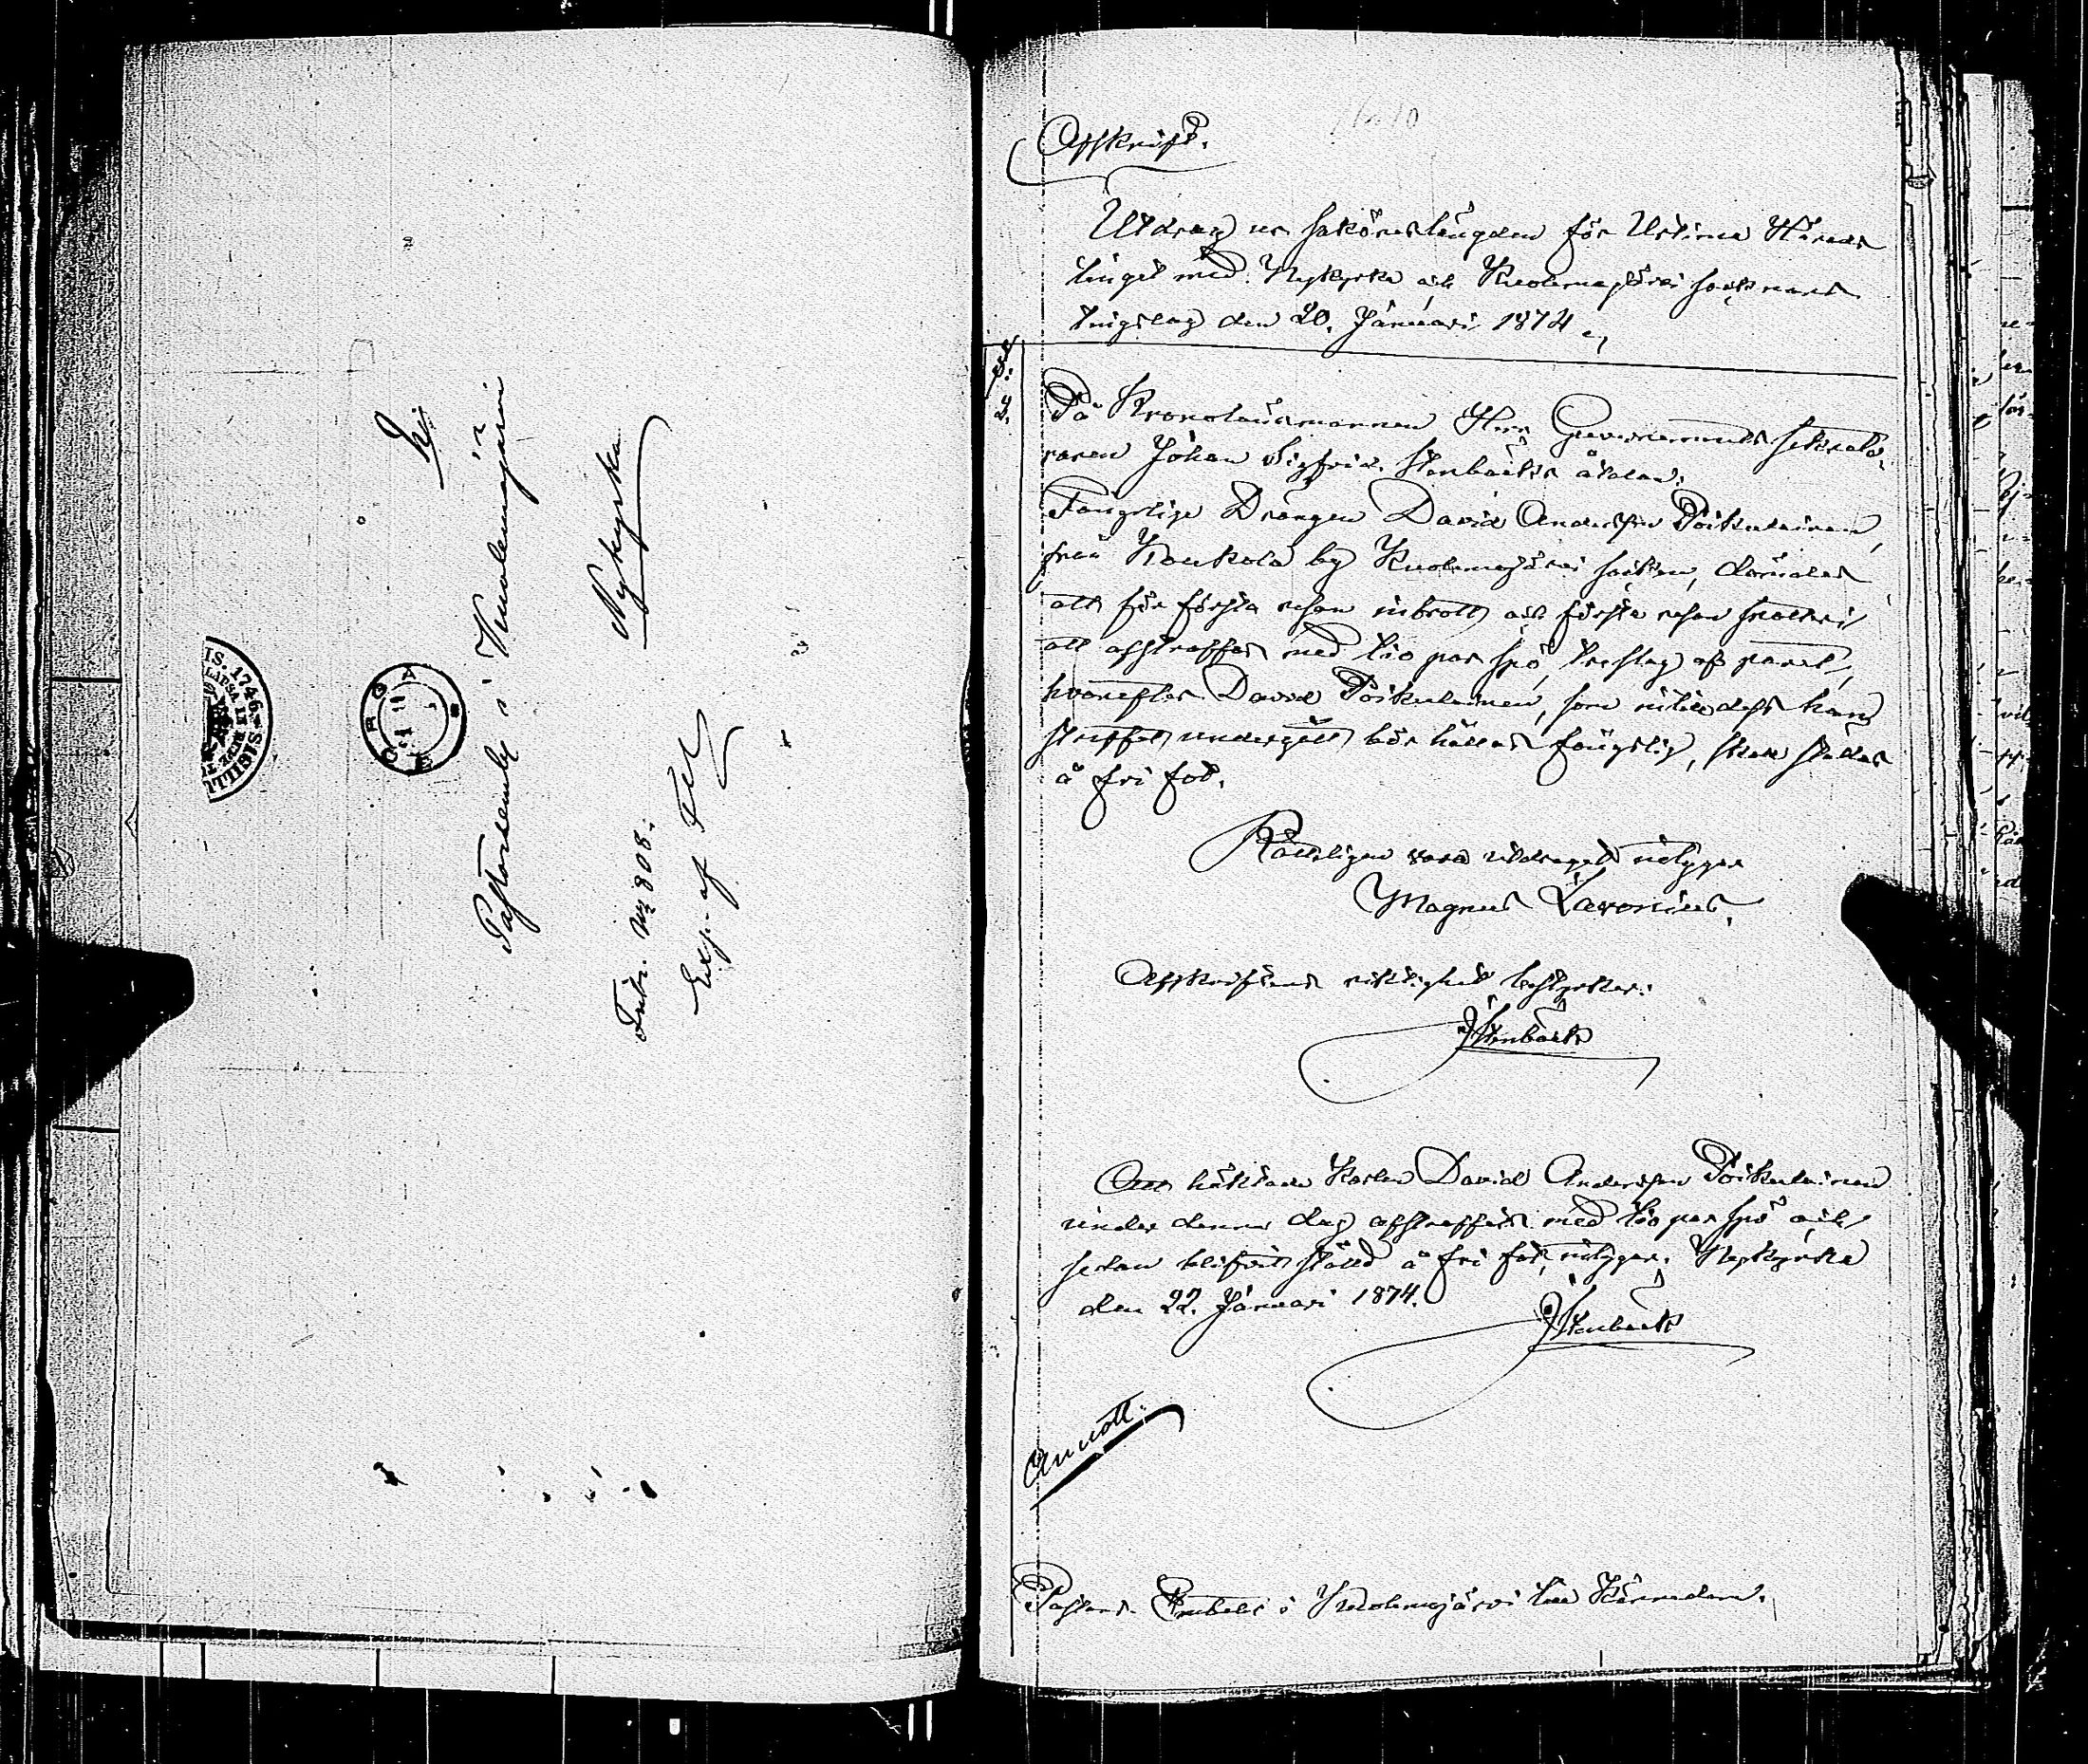 Kr.
Pastorsemb. i Kuolemajärvi
Nykyrka
Fribr. No 808.
Exp. af
BORGÅ
IS. 1746. SIGILLU
LAPSA
Afskrift.
Utdrag ur saköreslängden för Urtima Härads
tinget med Nykyrka och Kuolemajärvi socknars
tingslag den 20. Januari 1874.
§.
2.
På Kronolänsmannen Herr Guvernements sekrete-
raren Johan Sigfrid Stenbäcks åtalan.
Fängslige Drängen David Andersson Poikulainen
från Koukola by Kuolemajärvi socken, dömdes
att för första resan inbrott och första resan snatteri
att afstraffas med tio par spö, tre slag af paret,
hvarefter David Poikulainen, som intilldess han
straffet undergått bör hållas fängslig, skall ställas
å fri fot.
Rätteligen vara utdraget intygar
Magnus Lavonius.
Afskriftens riktighet bestyrker:
JStenbäck
Att häktade Karlen David Andersson Poikulainen
under denna dag afstraffats med tio par spö och
sedan blifvit ställd å fri fot, intygar. Nykyrka
den 22. Januari 1874.
JStenbäck
Annott.
Pastors Embetet i Kuolemajärvi till Kännedom.